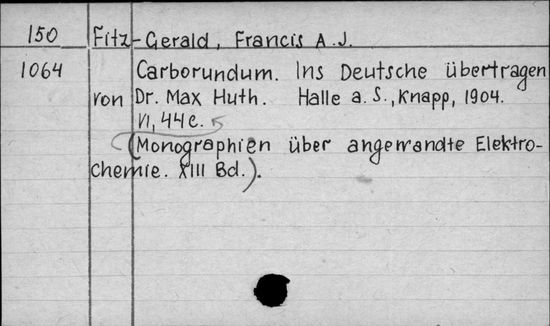 150 Fitz-Gerald, Francis A.J.
1064 Carborundum. Ins Deutsche übertragen
von Dr. Max Huth. Halle a. S., Knapp, 1904.
VI, 44 c.
(Monographien über angewandte Elektro-
chemie. XIII Bd.).